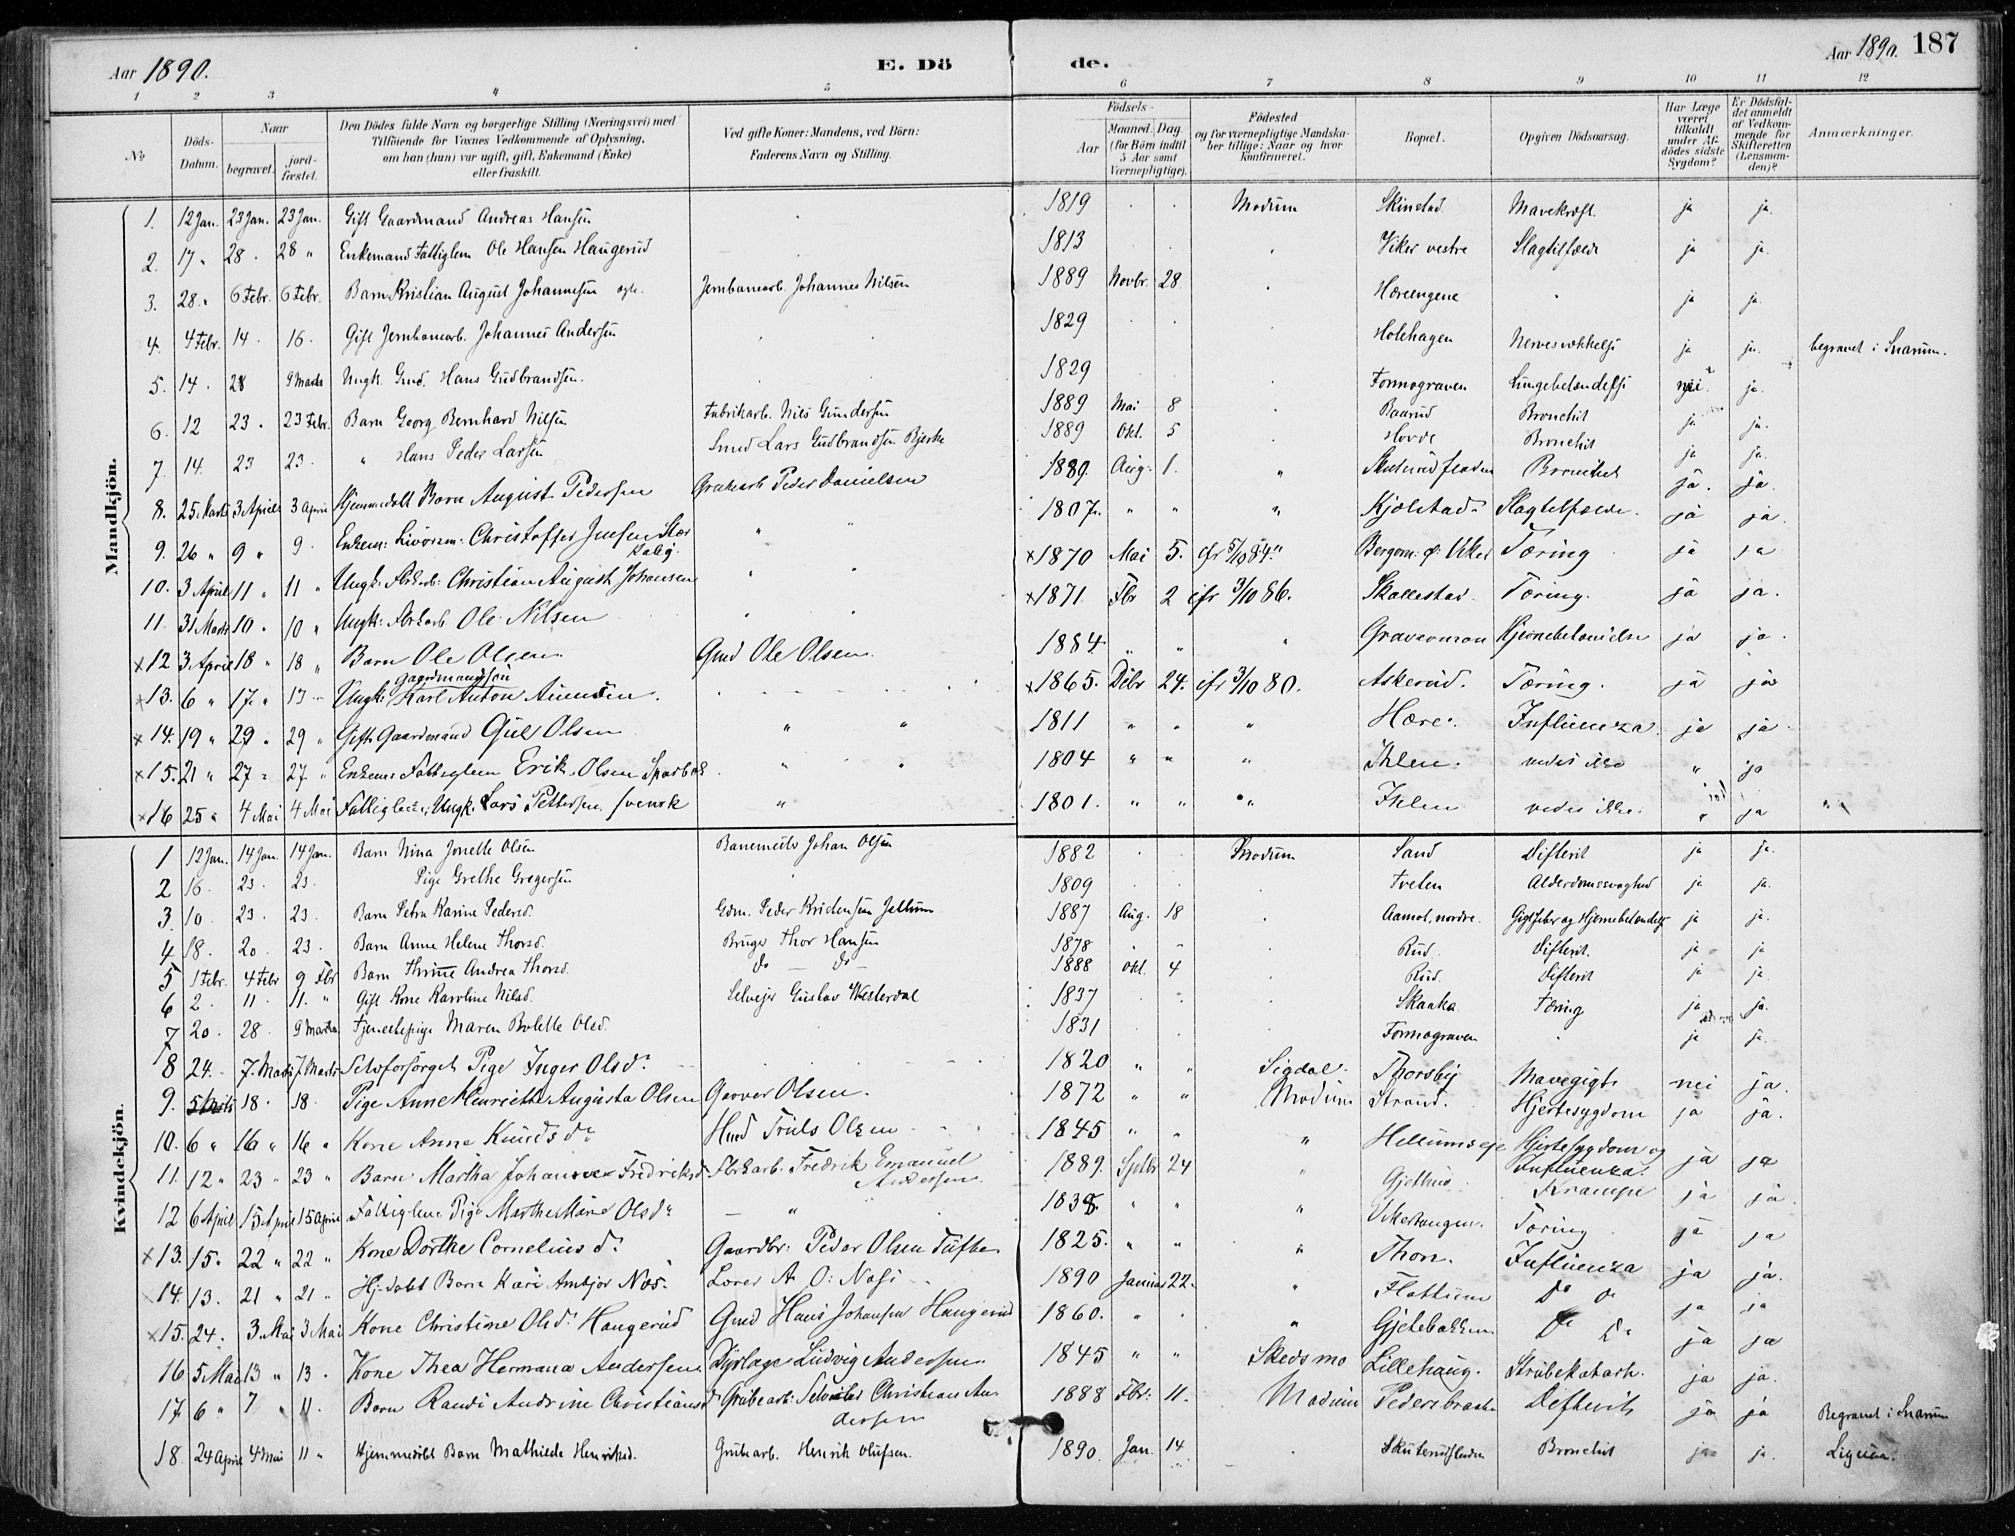 Aar 1890. E. Dö de. Aar 1890. 187
1 2 3 4 5 6 7 8 9 10 11 12
No Döds-Datum. Naar begravet. jordfæstet. Den Dödes fulde Navn og borgerlige Stilling (Næringsvei) med Tilföiende for Voxnes Vedkommende af Oplysning, om han (hun) var ugift, gift, Enkemand (Enke) eller fraskilt. Ved gifte Koner: Mandens, ved Börn: Faderens Navn og Stilling. Födsels- Aar Maaned. Dag (for Börn indtil 5 Aar samt Værnepligtige). Födested og for værnepligtige Mandskaber tillige: Naar og hvor konfirmeret. Bopæl. Opgiven Dödsaarsag. Har Læge været tilkaldt under Afdödes sidste Sygdom? Er Dödsfaldet anmeldt af Vedkommende for Skifteretten (Lensmanden)? Anmærkninger.
Mandkjön.
1. 12 Jan. 23 Jan. 23 Jan. Gift Gaardmand Andreas Hansen 1819 Modum Skinstad Mavekræft. ja ja.
2. 17 " 28 . 28 " Enkemand Fattiglem Ole Hansen Haugerud 1813 Viker vestre Slagtilfælde ja ja.
3. 28. " 6 Febr. 6 Febr. Barn Kristian August Johannesen Jernbanearb. Johannes Nilsen 1889 Novbr. 28 Hæreengene ja ja.
4. 4 Febr. 14 . 16 . Gift Jernbanearb. Johannes Andersen 1829 Holehagen ja ja. begravet i Snarum.
5. 14 . 28 9 Marts Ungk. Gmd. Hans Gudbrandsen. 1829 Formograven Lungebetændelse nei ja.
6. 12 23 . 23 Febr. Barn Georg Bernhard Nilsen Fabrikarb. Nils Gundersen 1889 Mai 8 Baarud Bronchit ja ja.
7. 14. 23 23 . " Hans Peder Larsen Smed Lars Gudbrandsen Bjerke 1889 Okt. 5 Hovde Bronchit ja ja.
8. 25 Marts 3 April 3 April Hjemmedøbt Barn August Pedersen Grubearb Peder Danielsen 1889 Aug. 1. " Skuterudfladen Bronchit ja. ja.
9. 26 " 9 " 9 . Enkem: Christoffer Jensen 1807. " " " Kjølstad Slagtilfælde. ja ja.
10. 3 April 11 " 11 " Ungk: Fbrkarb: Christian August Johansen x 1870 Mai 5. cfr 5/10 84." Viker Tæring ja ja
11. 31 Marts 10 . 10 " Ungk: Fbrkarb Ole Nilsen x 1871 Fbr 2 cfr 3/10 86. Skallestad. Tæring. ja ja.
x 12 3 April 18 " 18 " Barn Ole Olsen Gmd Ole Olsen. 1884 " " " Hjernebetændelse ja ja.
x 13. 6 " 17 " 17 Ungk: Gaardmandssøn Karl Anton x 1865. Dcbr 24. cfr 3/10 80. Askerud. Tæring. ja ja
x 14. 19 " 29 " 29 " Gift Gaardmand Gul Olsen " " 1811 " " " Hære. Influenza. ja ja
x 15. 21 " 27 " 27 " Enkem: Fattiglem Erik Olsen " " 1804 " " " Ihlen. vedes ikke " ja
x 16 25 " 4 Mai 4 Mai Ungk. Lars Pettersen svensk " 1801. " " " Ihlen vedes ikke. " ja
Kvindekjön.
1 12 Jan. 14 Jan. 14 Jan. Barn Nina Jonette Olsen Banemester Johan Olsen 1882 Modum Sand Difterit ja ja.
2 16. 23. 23. Pige Grethe Gregersen 1809 Tveten Alderdomssvaghed ja ja.
3 10. 23. 23. Barn Petra Karine Pedersd. Gdm. Peder Kristensen Jellum 1887 Aug. 18 Aamot, nordre. Gigtfeber og Hjernebetændelse ja ja.
4 18. 20. 23. Barn Anne Helene Thorsd. Bruger Thor Hansen 1878 Rud. Difterit. ja ja.
5 1 Febr. 4 Febr 9 Fbr Barn Thrine Andrea Thorsd. do — do — 1888 Okt. 4 Rud. Difterit ja ja.
6 2. 11 11. " Gift Kone Karoline Nilsd. Selvejer Gustav Westerdal 1837 Skaaka Tæring ja ja.
7 20. 28 . 9 Marts Tjenestepige Maren Bolette Olsd. 1831 Formograven ja ja.
8 24. 7. Marts 7 Marts Selvforsørget Pige Inger Olsd. 1820 " " Sigdal. Thorsby Mavegigt nei ja.
9. 5 Marts 18 . 18 . Pige Anne Henriette Augusta Olsen Gaarver Olsen. 1872 " " Modum Strand. Hjertesygdom ja ja.
10. 6 " 16 " 16 " Kone Anne Knudsdr Hmd Truls Olsen 1845 " " " Hellumseje Hjertesygdom og Influenza. ja ja
11. 12 " 23 " 23 " Barn Martha Johanne Fredriksd Fbrkarb. Fredrik Emanuel Andersen 1889. Sptbr 24 " Gjethus Krampe ja ja.
12 6 April 15 April 15 April Fattiglem Pige Marthe Marie Olsdr — " 1838. " " " Vikertangen. Tæring ja ja
x 13. 15. 22 " 22 " Kone Dorthe Corneliusd. Gaardbr: Peder Olsen Tufte 1825. " " " Thon. Influenza ja ja.
14. 13. 21 " 21 " Hj.døbt Barn Kari Ambjør 1890 Januar 22. " Flattum Do o ja ja
x 15. 24. 3 Mai 3 Mai Kone Christine Olsd. Haugerud Gmd Hans Johansen Haugerud 1860. " " " Gjetebakken. Do Do ja ja
16 5 Mai 13 " 13 . Kone Thea Hermana Andersen Ludvig Andersen 1845 " " Skedsmo Lillehaug. Strubekatarh. ja ja.
17. 6 " 7 " 11. Barn Randi Andrine Christiansd Grubearb: Christian Andersen 1888 Fbr: 11. Modum Pedersbraaten Difterit ja ja Begravet i Snarum
18. 24 April 4 Mai 11 " Hjemmedøbt Barn Mathilde Henriksd. Grubearb. Henrik Olufsen. 1890. Jan. 14 Skuterudfladen Bronchit ja ja.